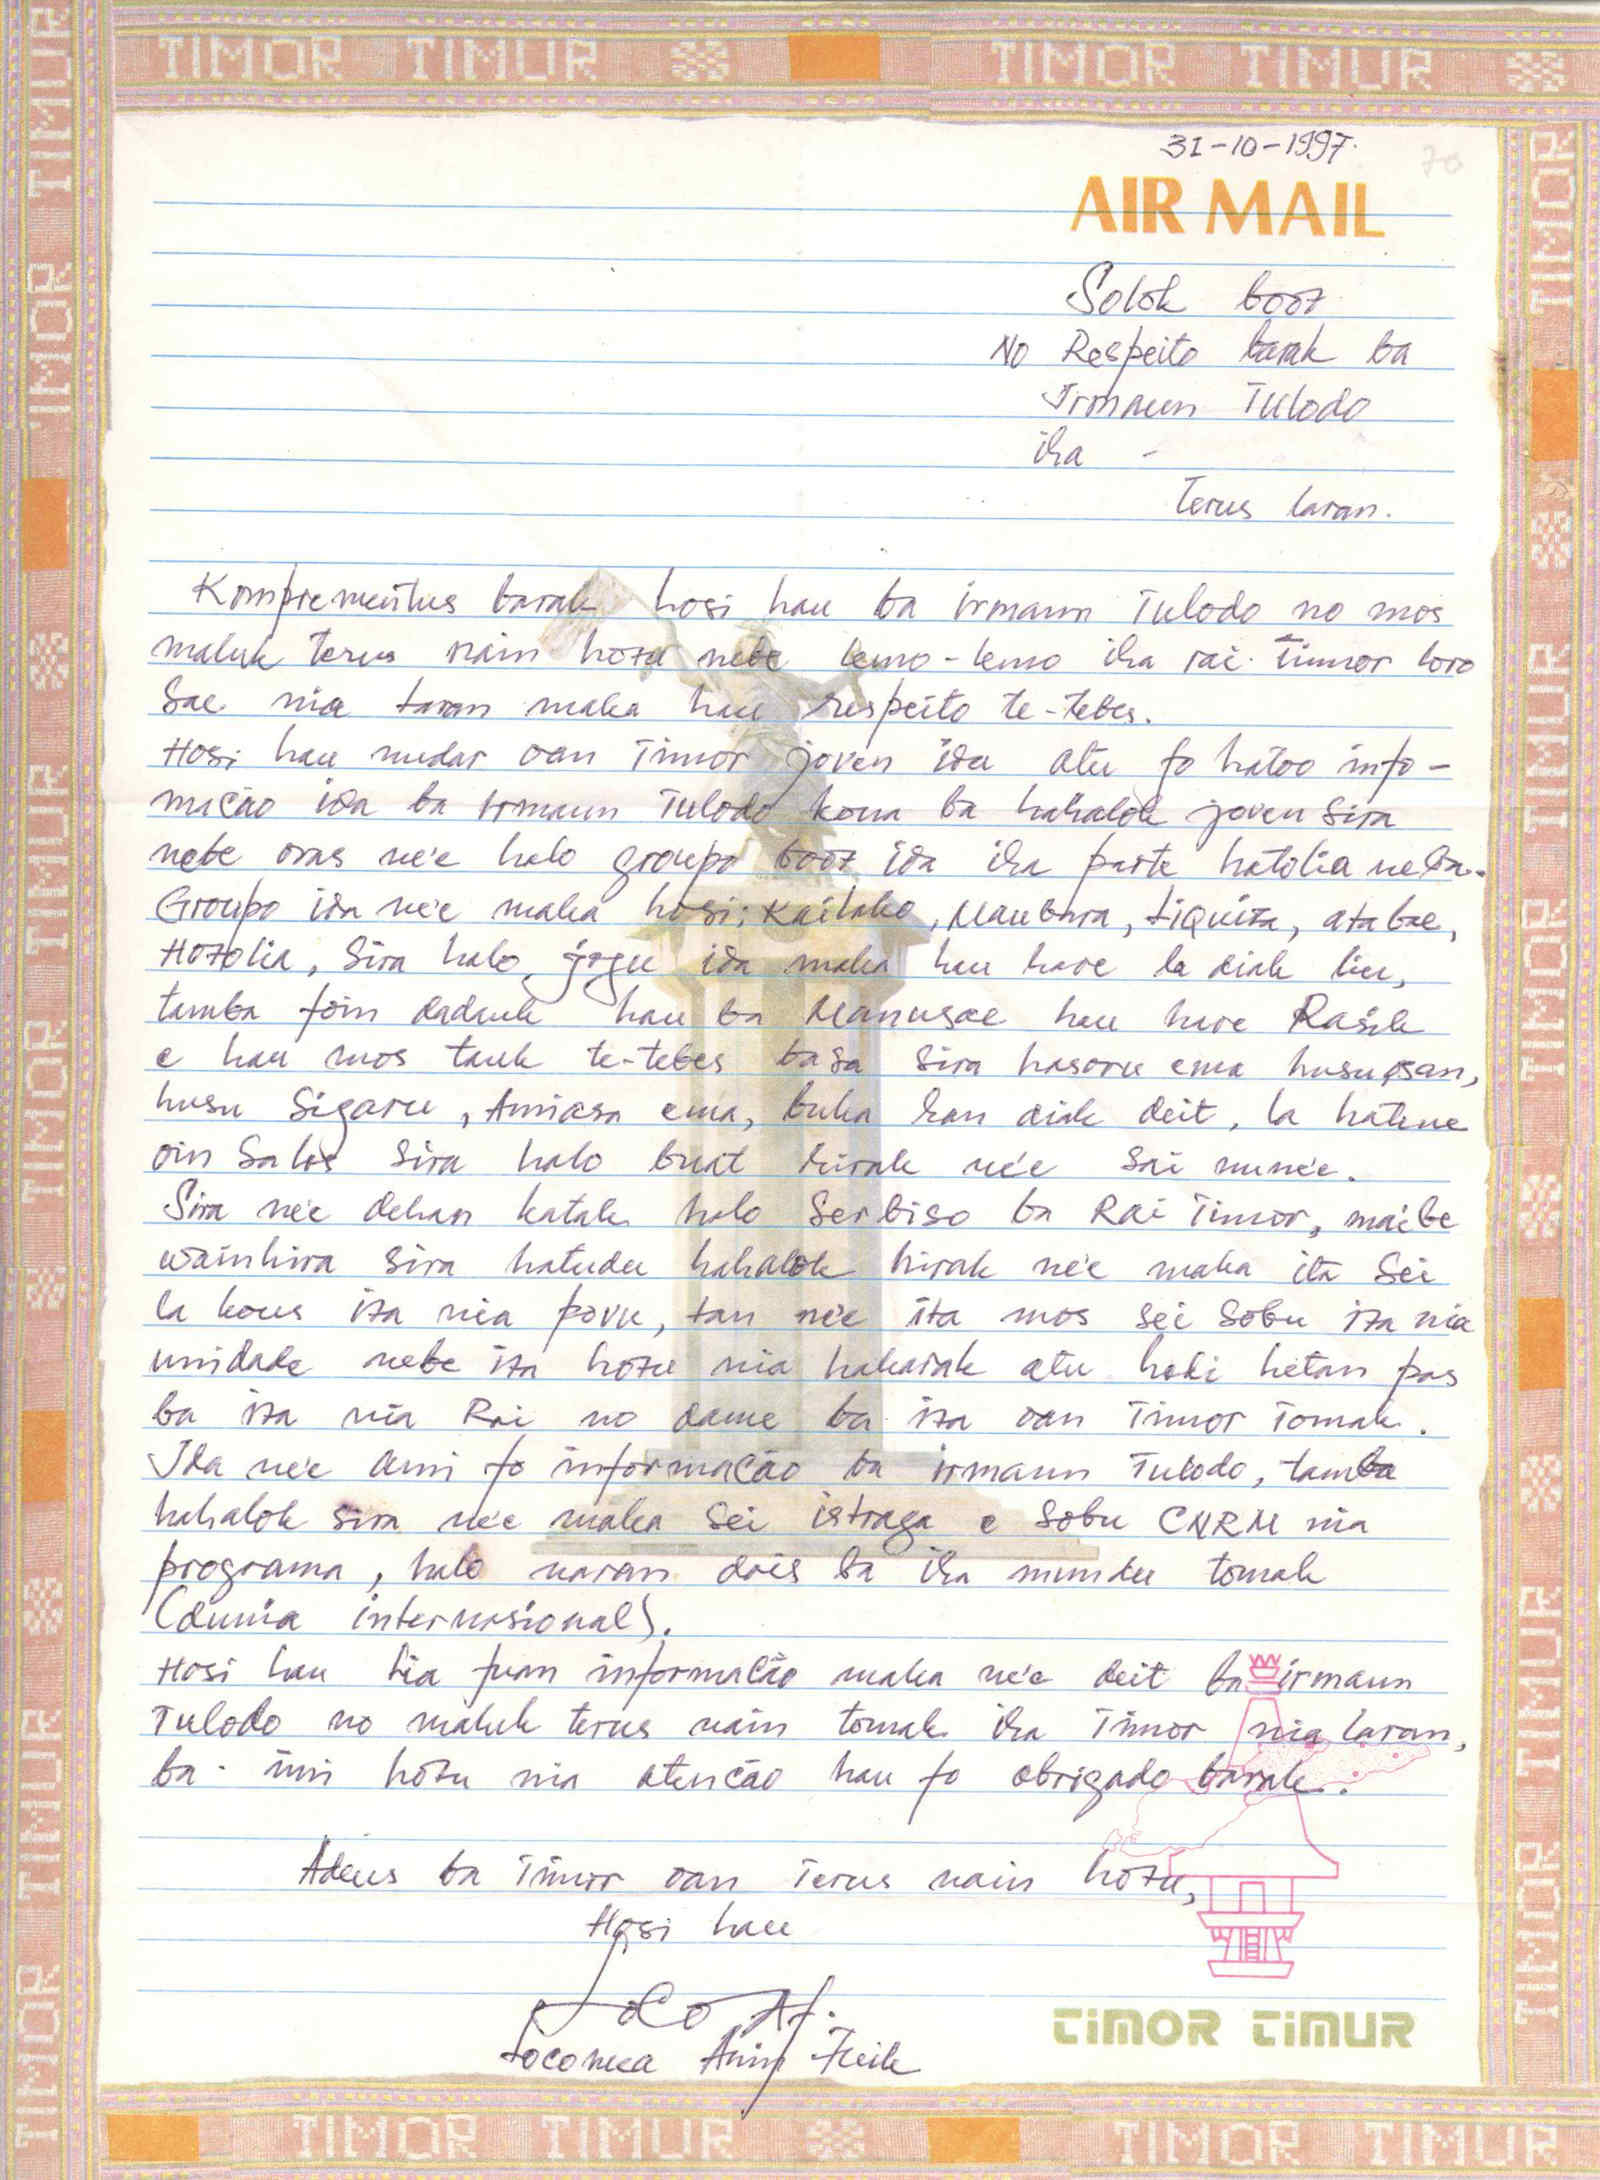 TIMOR TIMUR TIMOR TIMUR
31-10-1997.
70
AIR MAIL
Solok boot
No Respeito barak ba
Irmaun Tulodo
iha -
Terus laran.
Komprementus barak hosi hau ba irmaun Tulodo no mos
maluk terus nain hotu nebe lemo-lemo iha rai Timor loro
Sae nia laran maka hau respeito te-tebes.
Hosi hau nudar oan Timor joven ida atu fo hatoo info-
mação ida ba irmaun Tulodo kona ba hahalok joven sira
nebe oras ne'e halo groupo boot ida iha parte hatolia neba.
Groupo ida ne'e maka hosi; Kailako, Maubara, Liquiza, atabae,
Hatolia, Sira halo jogu ida maka hau hare la diak liu,
tamba foin dadauk hau ba Manusae hau hare Rasik
e hau mos tauk te-tebes basa sira hasoru ema husu osan,
husu Sigaru, Amiasa ema, buka han diak deit, la hatene
oin Salos sira halo buat hirak ne'e sai nune'e.
Sira ne'e dehan katak halo Serbiso ba Rai Timor, maibe
wainhira sira hatudu hahalok hirak ne'e maka ita Sei
la kous ita nia povu, tan ne'e ita mos sei Sobu ita nia
unidade nebe ita hotu nia hakarak atu hodi hetan pas
ba ita nia Rai no dame ba ita oan Timor Tomak.
Ida ne'e ami fo informação ba irmaun Tulodo, tamba
hahalok sira ne'e maka Sei istraga e Sobu CNRM nia
programa, halo naran dois ba iha mundu tomak
(dunia internasional).
Hosi hau lia fuan informação maka ne'e deit ba irmaun
Tulodo no maluk terus nain tomak iha Timor nia laran,
ba imi hotu nia atenção hau fo obrigado barak.
Adeus ba Timor oan Terus nain hotu,
Hosi hau
Loco At.
Loconea Anin Fuik
TIMOR TIMUR
TIMOR TIMUR TIMOR TIMUR